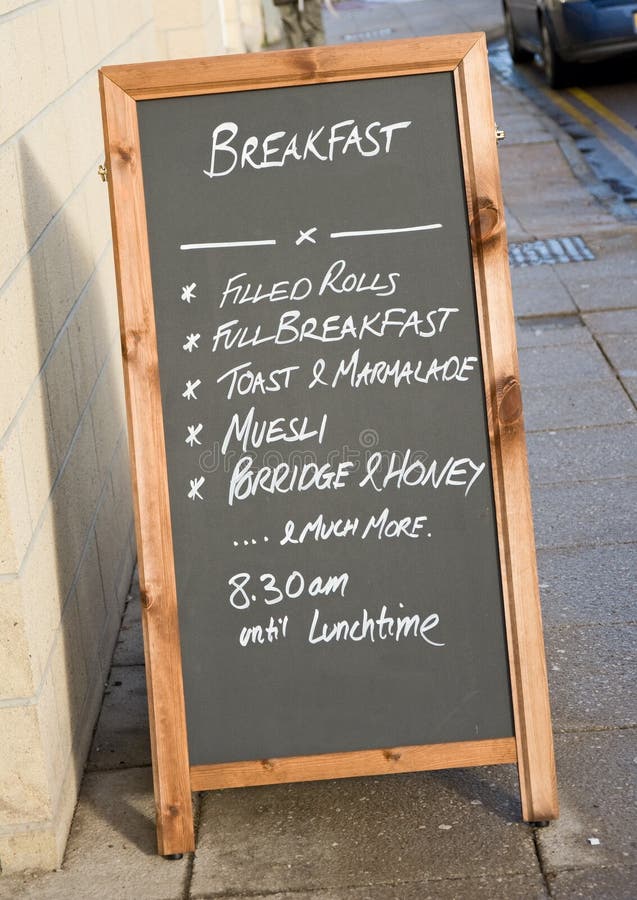 BREAKFAST
x
* FILLED ROLLS
* FULL BREAKFAST
* TOAST & MARMALADE
* MUESLI
* PORRIDGE & HONEY
.... & MUCH MORE.
8.30am
until Lunchtime
dreamstime